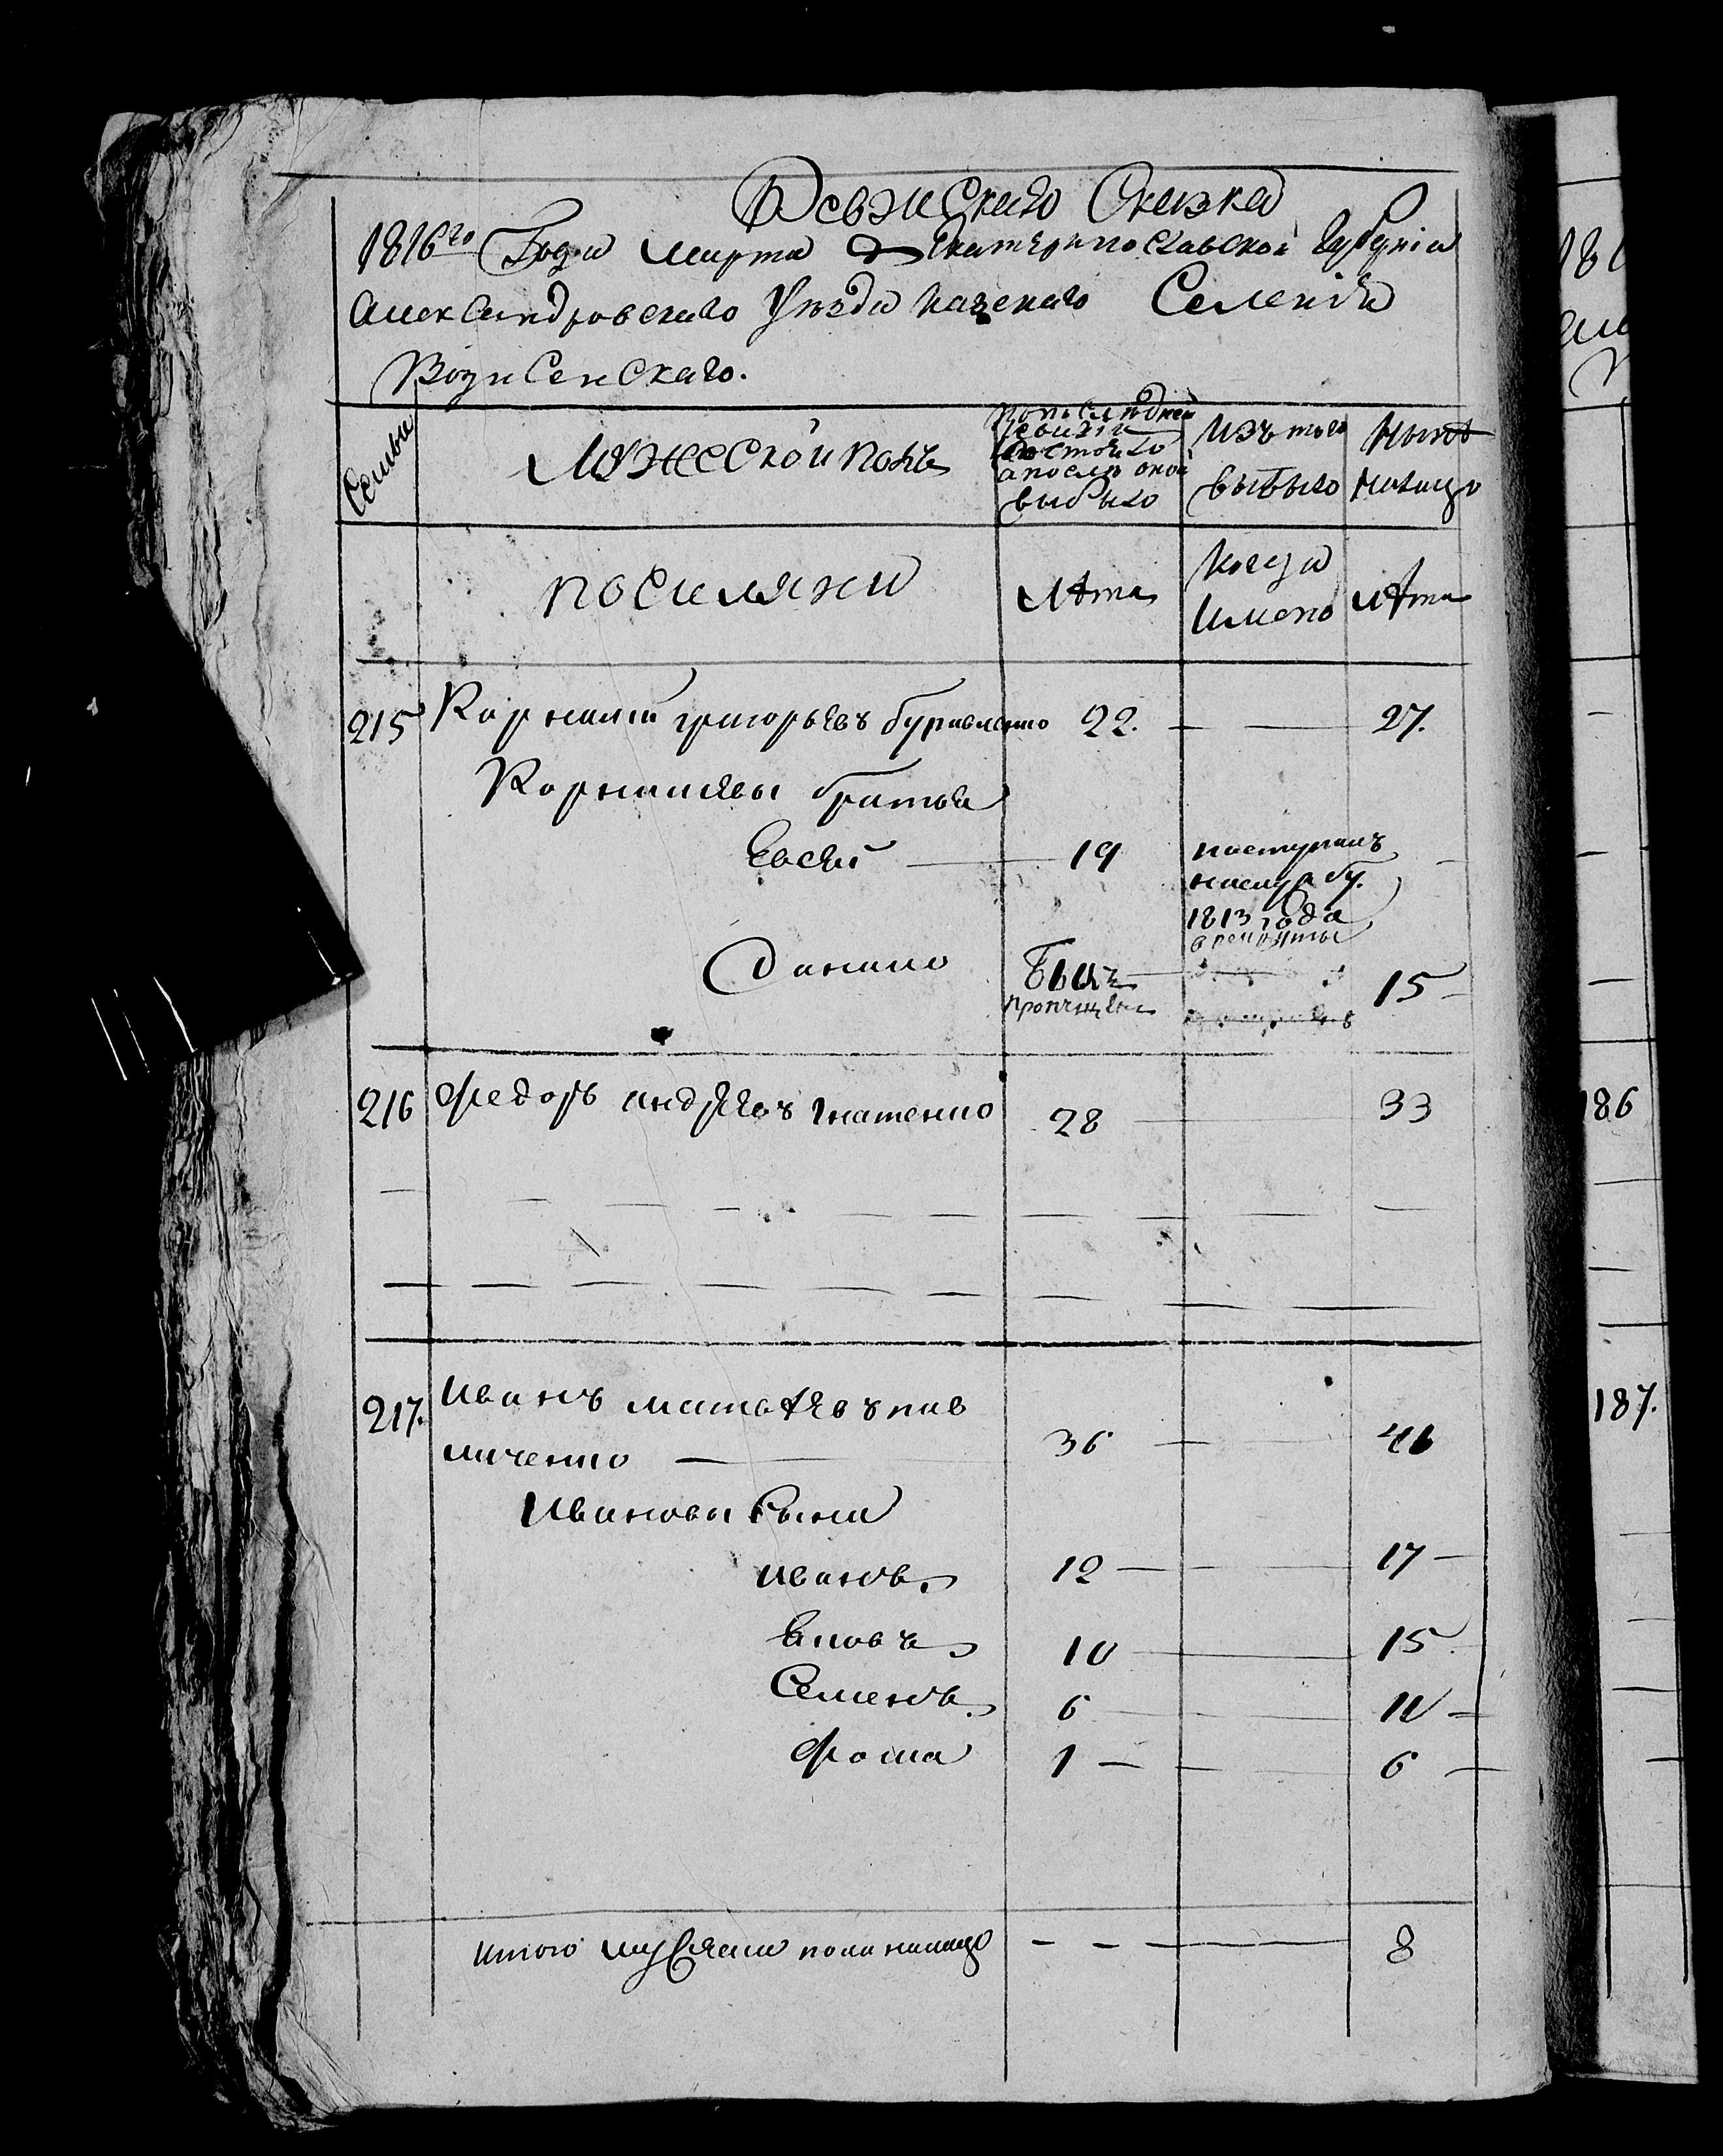 Ревизскаго Сказка
1816го Года марта Екатеринославской Губернiи
Александровскаго Уезда казенаго Селенiя
Вознесенскаго.
Семьи
Мужеской полъ
по последней ревизiи состояло а после оной выбыло
Изъ того выбыло
Ныне налицо
поселяни
лѣта
Когда имено
лѣта
215 Корнилий григорьевъ буравленко 22. 27.
Корнилиевы братья
Евсей 19 поступилъ
на службу.
1813 года
в рекруты
Данило Былъ 15
пропущенъ
216 Федоръ андреевъ гнатенко 28 33
217. Иванъ матвѣевъ пав
личенко 36 41
Ивановы Сыны
Иванъ 12 17
Яковъ 10 15
Семенъ 6 11
Фома 1 6
итого мужеска пола налицо 8
186
187.